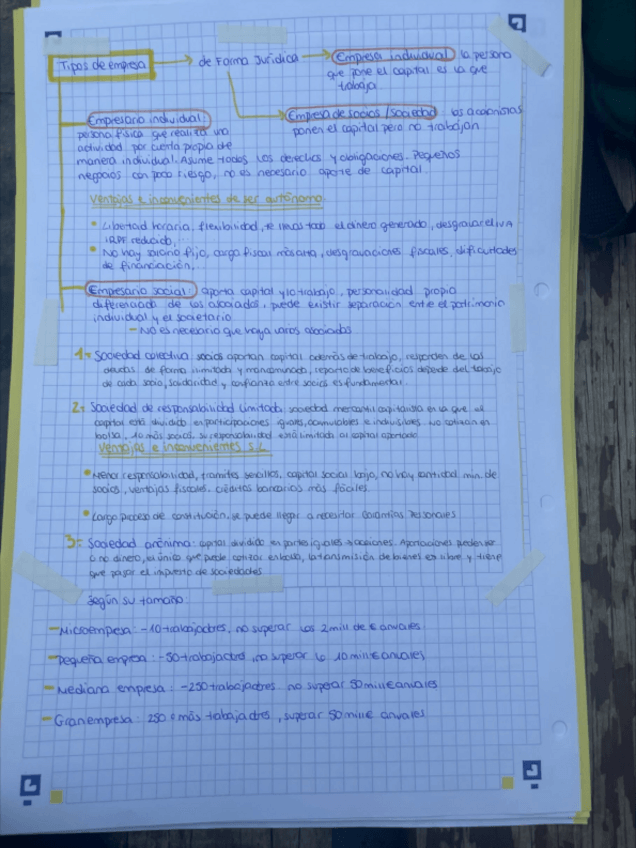 Tipos de empresa de Forma Jurídica Empresa individual: la persona
que pone el capital es la que
trabaja
Empresa de socios/sociedad: los accionistas
ponen el capital pero no trabajan
Empresario individual:
persona física que realiza una
actividad por cuenta propia de
manera individual. Asume todos los derechos y obligaciones. Pequeños
negocios con poco riesgo, no es necesario aporte de capital.
Ventajas e inconvenientes de ser autónomo
Libertad horaria, flexibilidad, te llevas todo el dinero generado, desgravar el IVA
IRPF reducido,
No hay salario fijo, carga fiscal más alta, desgravaciones fiscales, dificultades
de financiación,
Empresario social: aporta capital y/o trabajo, personalidad propia
diferenciada de los asociados, puede existir separación entre el patrimonio
individual y el societario
- No es necesario que haya varios asociados
1- Sociedad colectiva: socios aportan capital además de trabajo, responden de las
deudas de forma ilimitada y mancomunada, reparto de beneficios depende del trabajo
de cada socio, solidaridad y confianza entre socios es fundamental.
2- Sociedad de responsabilidad limitada: sociedad mercantil capitalista en la que el
capital está dividido en participaciones iguales, acumulables e indivisibles. No cotizan en
bolsa, 1 o más socios, su responsabilidad está limitada al capital aportado
Ventajas e inconvenientes S.L
Menor responsabilidad, tramites sencillos, capital social bajo, no hay cantidad min. de
socios, ventajas fiscales, créditos bancarios más fáciles.
Largo proceso de constitución, se puede llegar a necesitar Garantías Personales
3- Sociedad anónima: capital dividido en partes iguales → acciones. Aportaciones pueden ser
o no dinero, el único que puede cotizar en bolsa, la transmisión de bienes es libre y tiene
que pagar el impuesto de sociedades
Según su tamaño:
- Microempesa: -10 trabajadores, no superar los 2 mill de € anuales
- Pequeña empresa: -50 trabajadores, no superar lo 10 mill € anuales
- Mediana empresa: -250 trabajadores. no superar 50 mill € anuales
- Gran empresa: 250 o más trabajadores, superar 50 mill € anuales